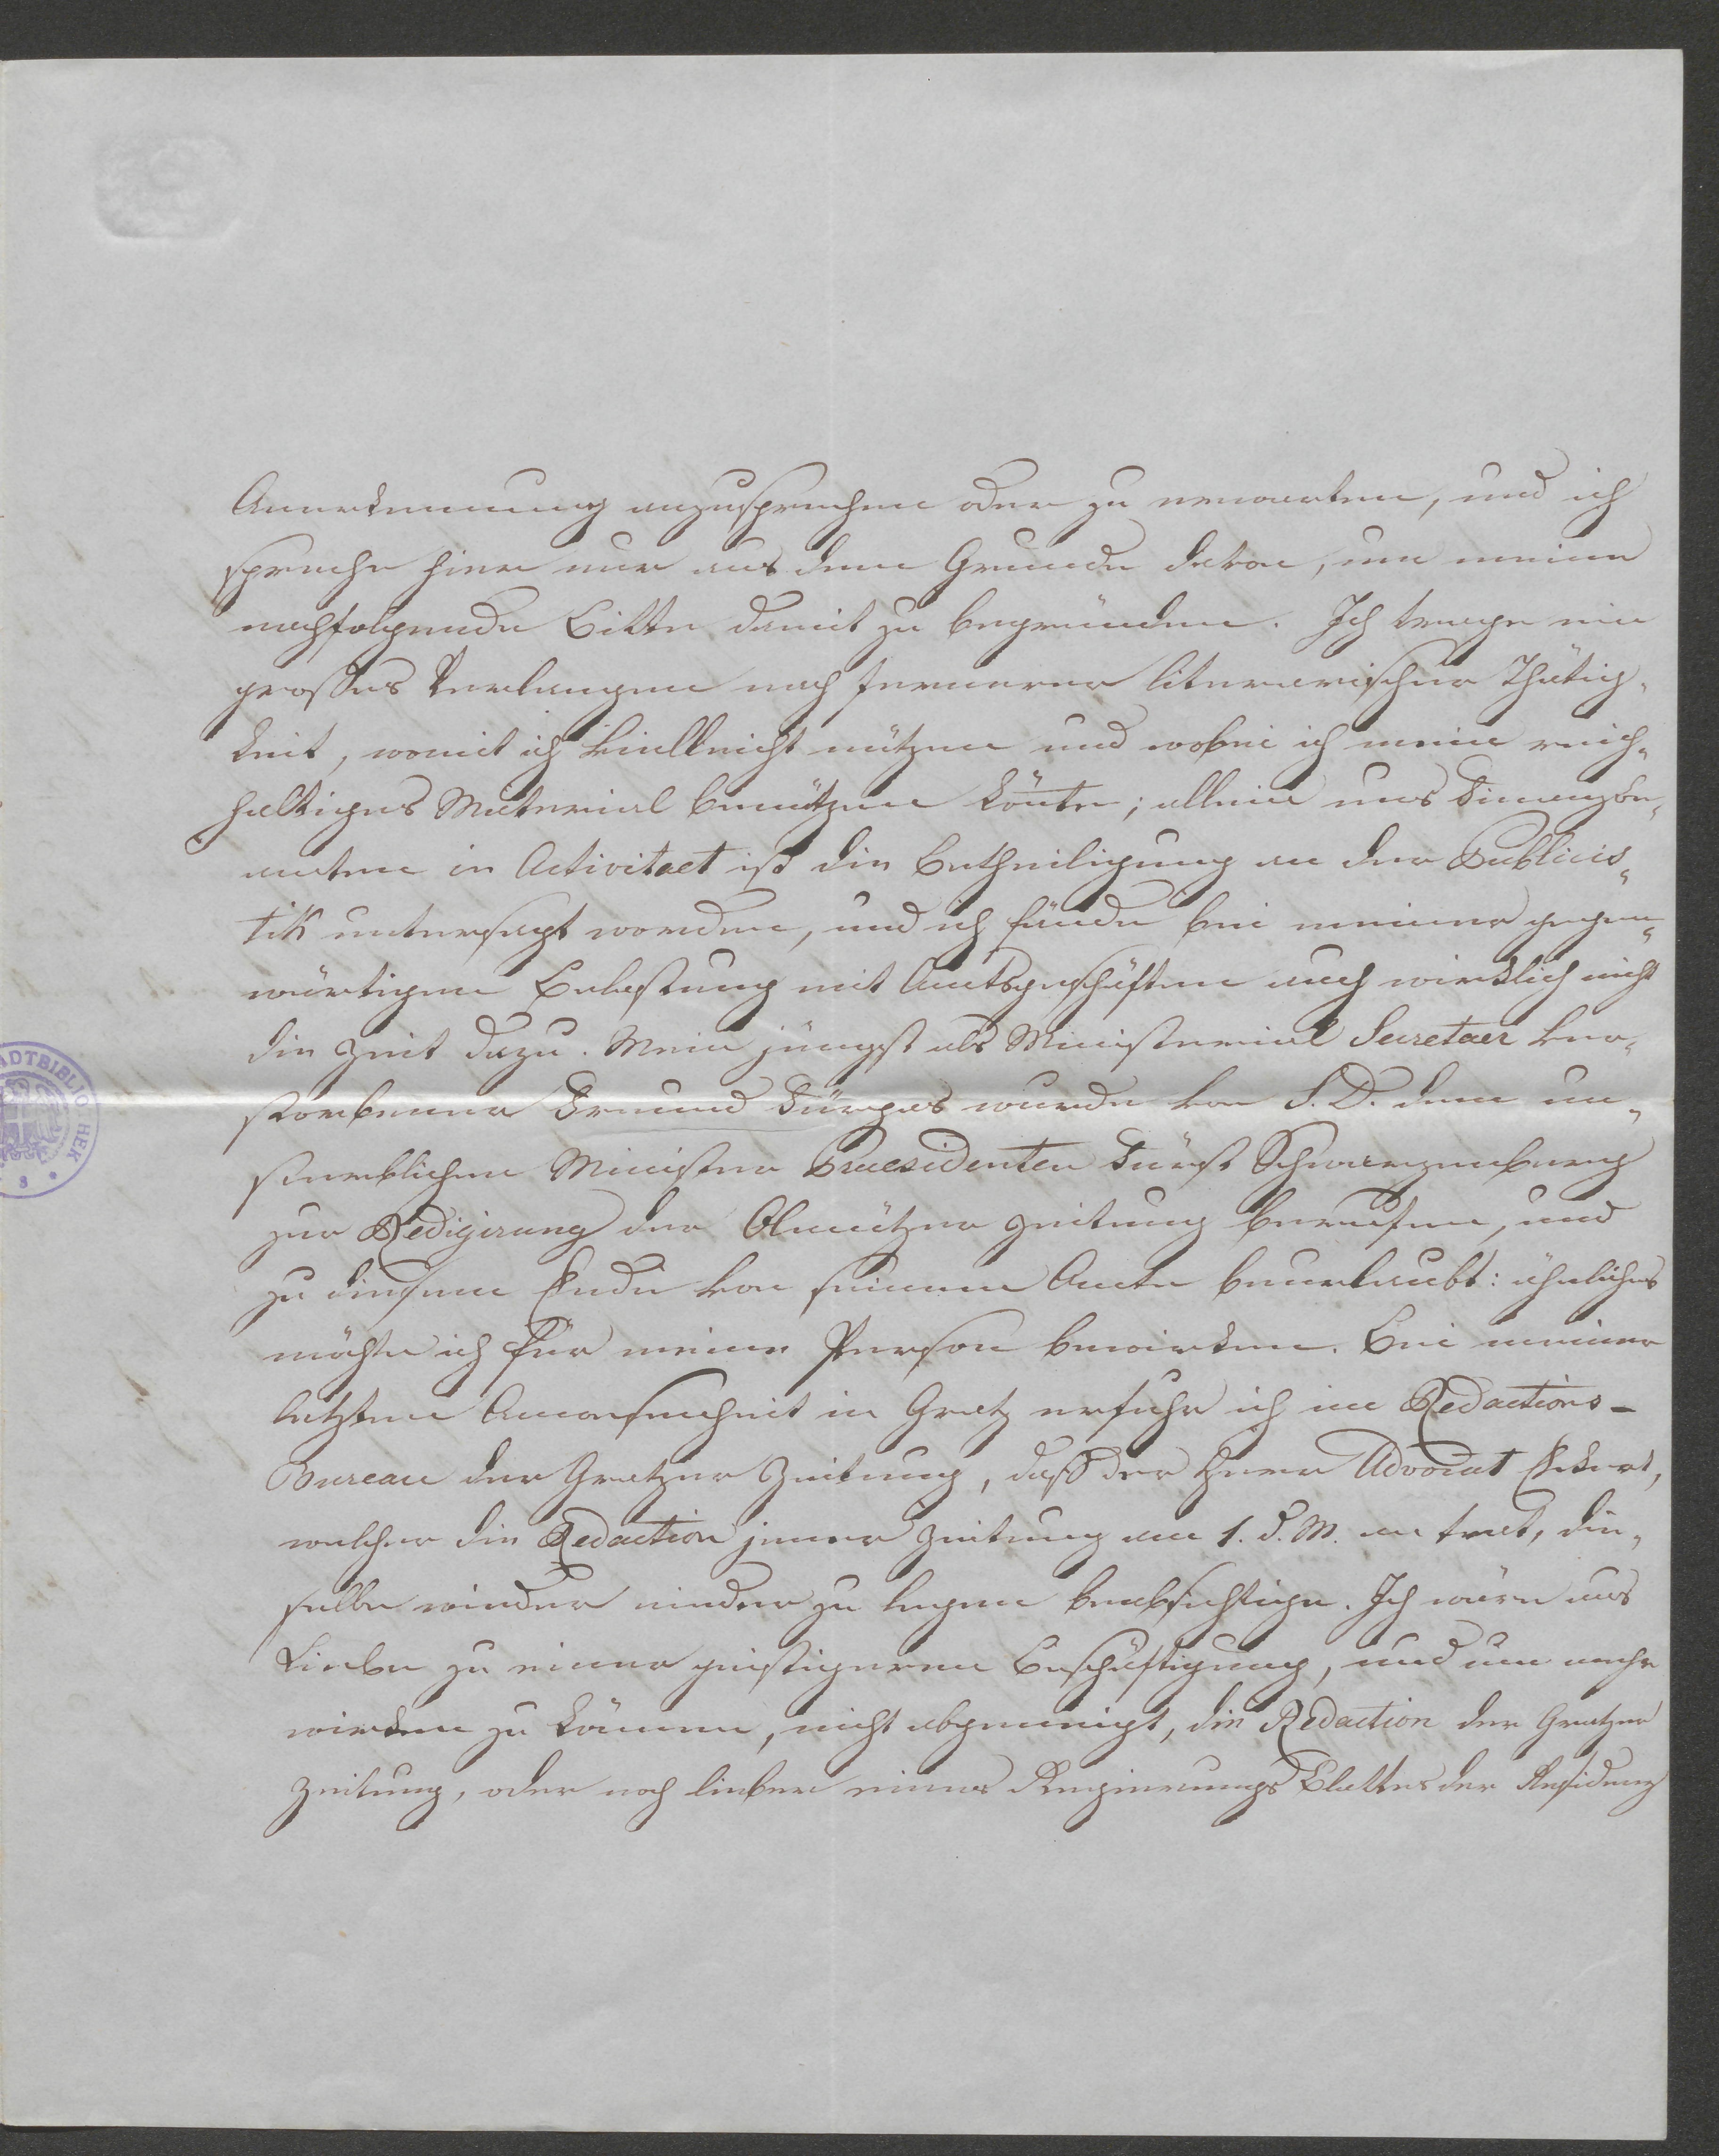 Anerkennung anzusprechen oder zu erwarten, und ich
spreche hier nur aus dem Grunde davon, um meine
nachfolgende Bitte damit zu begründen. Ich trage ein
grosses Verlangen nach fernerer literarischer Thätig„
keit, womit ich vielleicht nützen und wobei ich mein reich„
haltiges Material benützen könte; allein uns Finanzbe„
amten in Activitaet ist die Betheiligung an der Publicis„
tik untersagt worden, und ich fände bei meiner gegen„
wärtigen Belastung mit Amtsgeschäften auch wirklich nicht
die Zeit dazu. Mein jüngst als Ministerial Secretaer ver„
storbener Freund Türges wurde von S. D. dem un„
sterblichen Minister Praesidenten Fürst Schwarzenberg
zur Redigirung der Olmützer Zeitung berufen, und
zu diesem Ende von seinem Amte beurlaubt: ähnliches
möchte ich für meine Person bewirken. Bei meiner
letzten Anwesenheit in Gratz erfuhr ich im Redactions-
Bureau der Gratzer Zeitung, daß der Herr Advocat Eckert,
welcher die Redaction jener Zeitung am 1. d. M. an trat, die„
selbe wieder nieder zu legen beabsichtige. Ich wäre aus
Liebe zu einer geistigeren Beschäftigung, und um mehr
wirken zu können, nicht abgeneigt, die Redaction der Gratzer
Zeitung, oder noch lieber eines Regierungs Blattes der Residenz
STADTBIBLIOTHEK